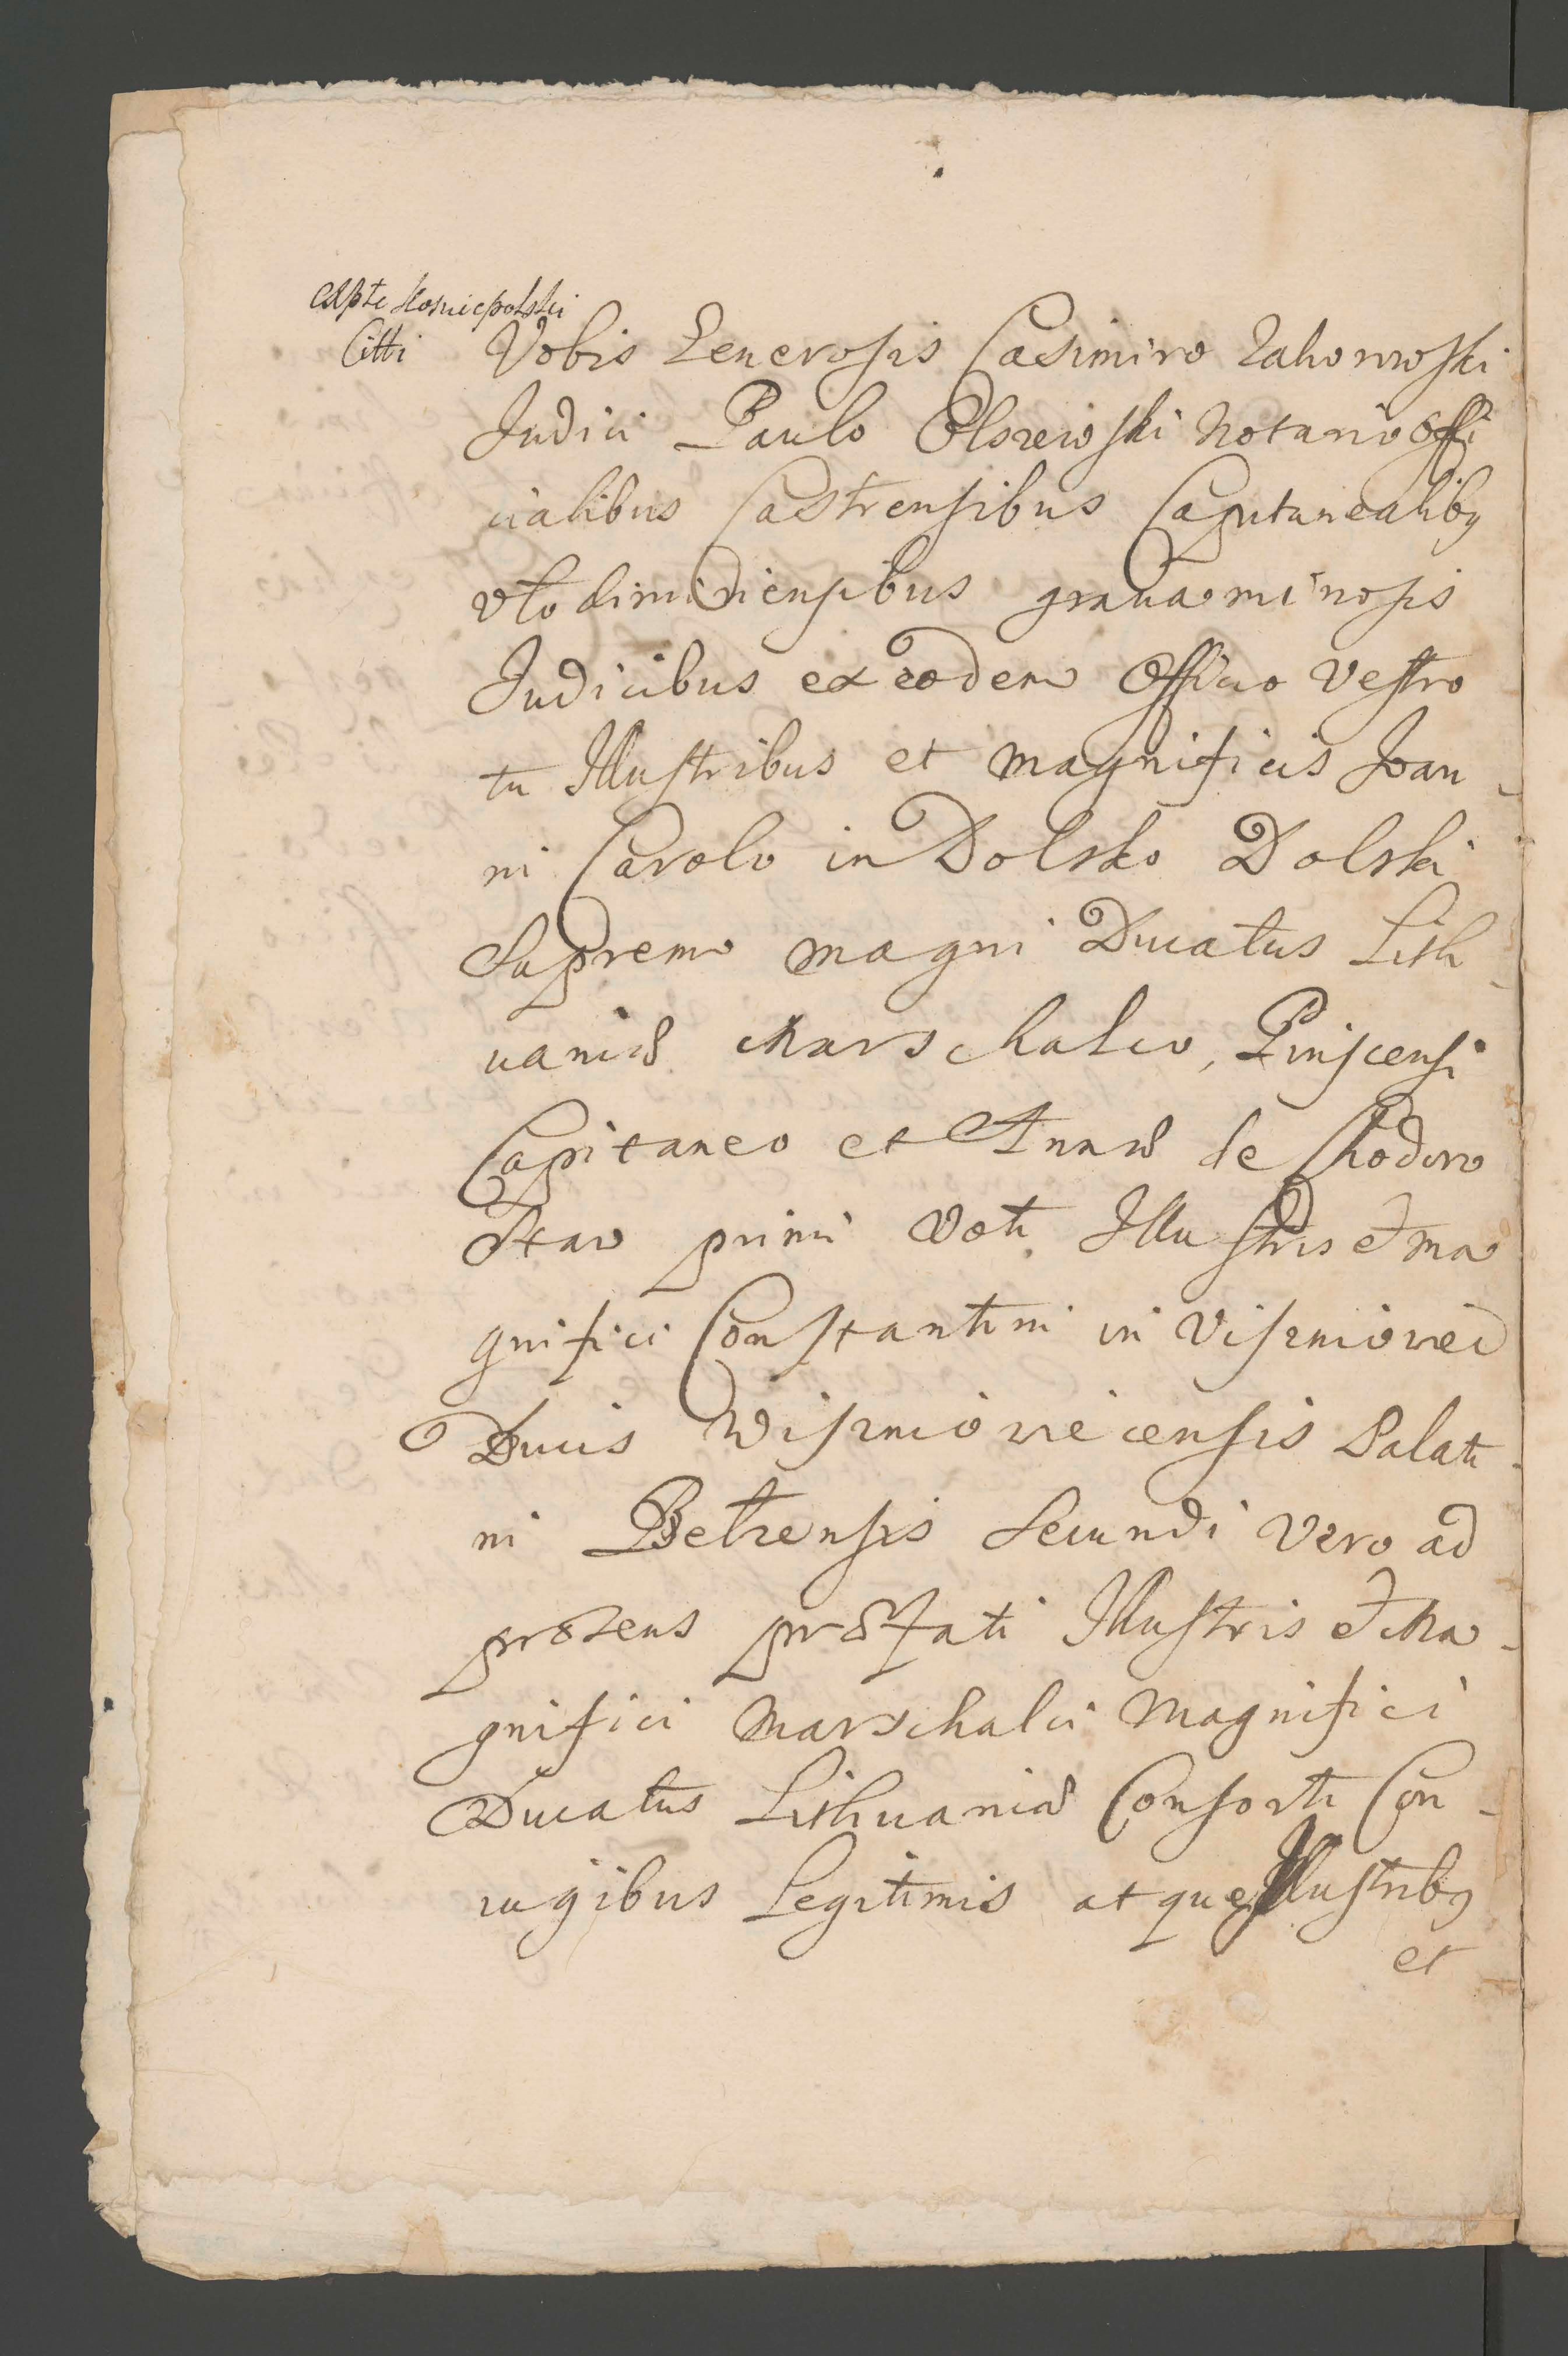 Koniecpolski
Citti
Vobis Generosis Casimiro Zahorowski
Judici Paulo Olszewski Notario Offi
cialibus Castrensibus Capitanealibꝫ
Vlodimiriensibus gravaminosis
Judicibus ex eodem Officio Vestro
tu Illustribus et Magnificis Joan-
ni Carolo in Dolsko Dolski
Supremo Magni Ducatus Lith-
vaniæ Marschalco, Pinscensi
Capitaneo et Annæ de Chodoro
Stav primi Voti Illustris et Ma
gnifici Constantini in Viszniowiec
Ducis Wiszniowiecensis Palati-
ni Belzensis Secundi Vero ad
præsens præfati Illustris et Ma-
gnifici Marschalci Magnifici
Ducatus Lithuaniæ Consorti Con-
iugibus Legitimis atque Illustribꝫ
et